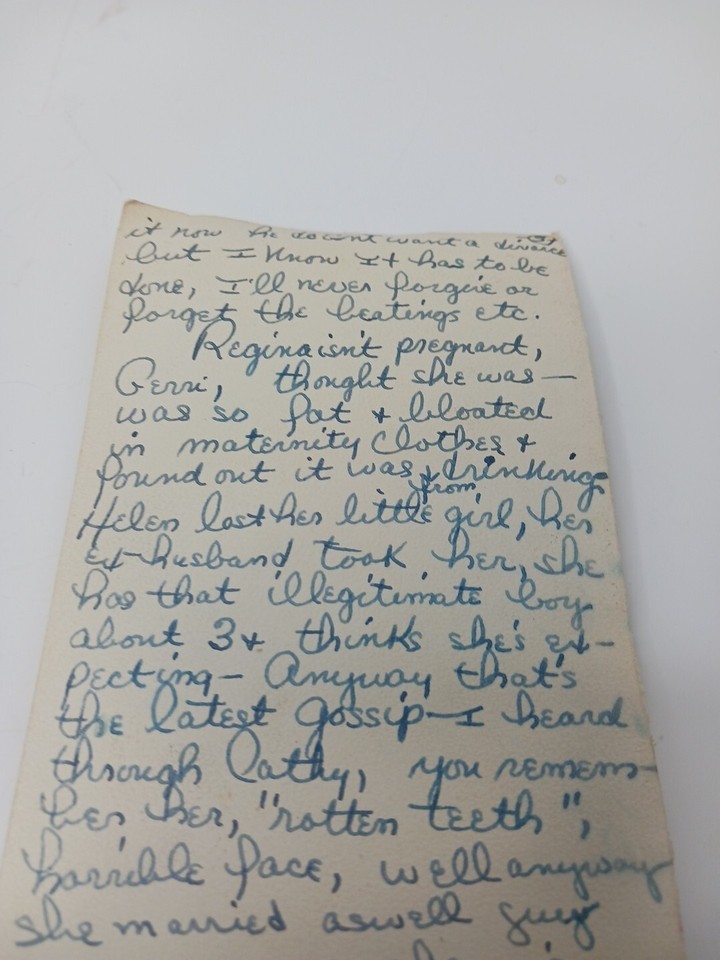 it now he doesnt want a divorce
but I know It has to be
done, I'll never forgive or
forget the beatings etc.
Regina isn't pregnant,
Gerri, thought she was—
was so fat & bloated
in maternity clothes &
found out it was from drinking.
Helen lost her little girl, her
ex-husband took her, she
has that illegitimate boy
about 3 & thinks she's ex-
pecting— Anyway that's
the latest gossip— I heard
through Cathy, you remem-
ber her, "rotten teeth",
horrible face, well anyway
she married aswell guy